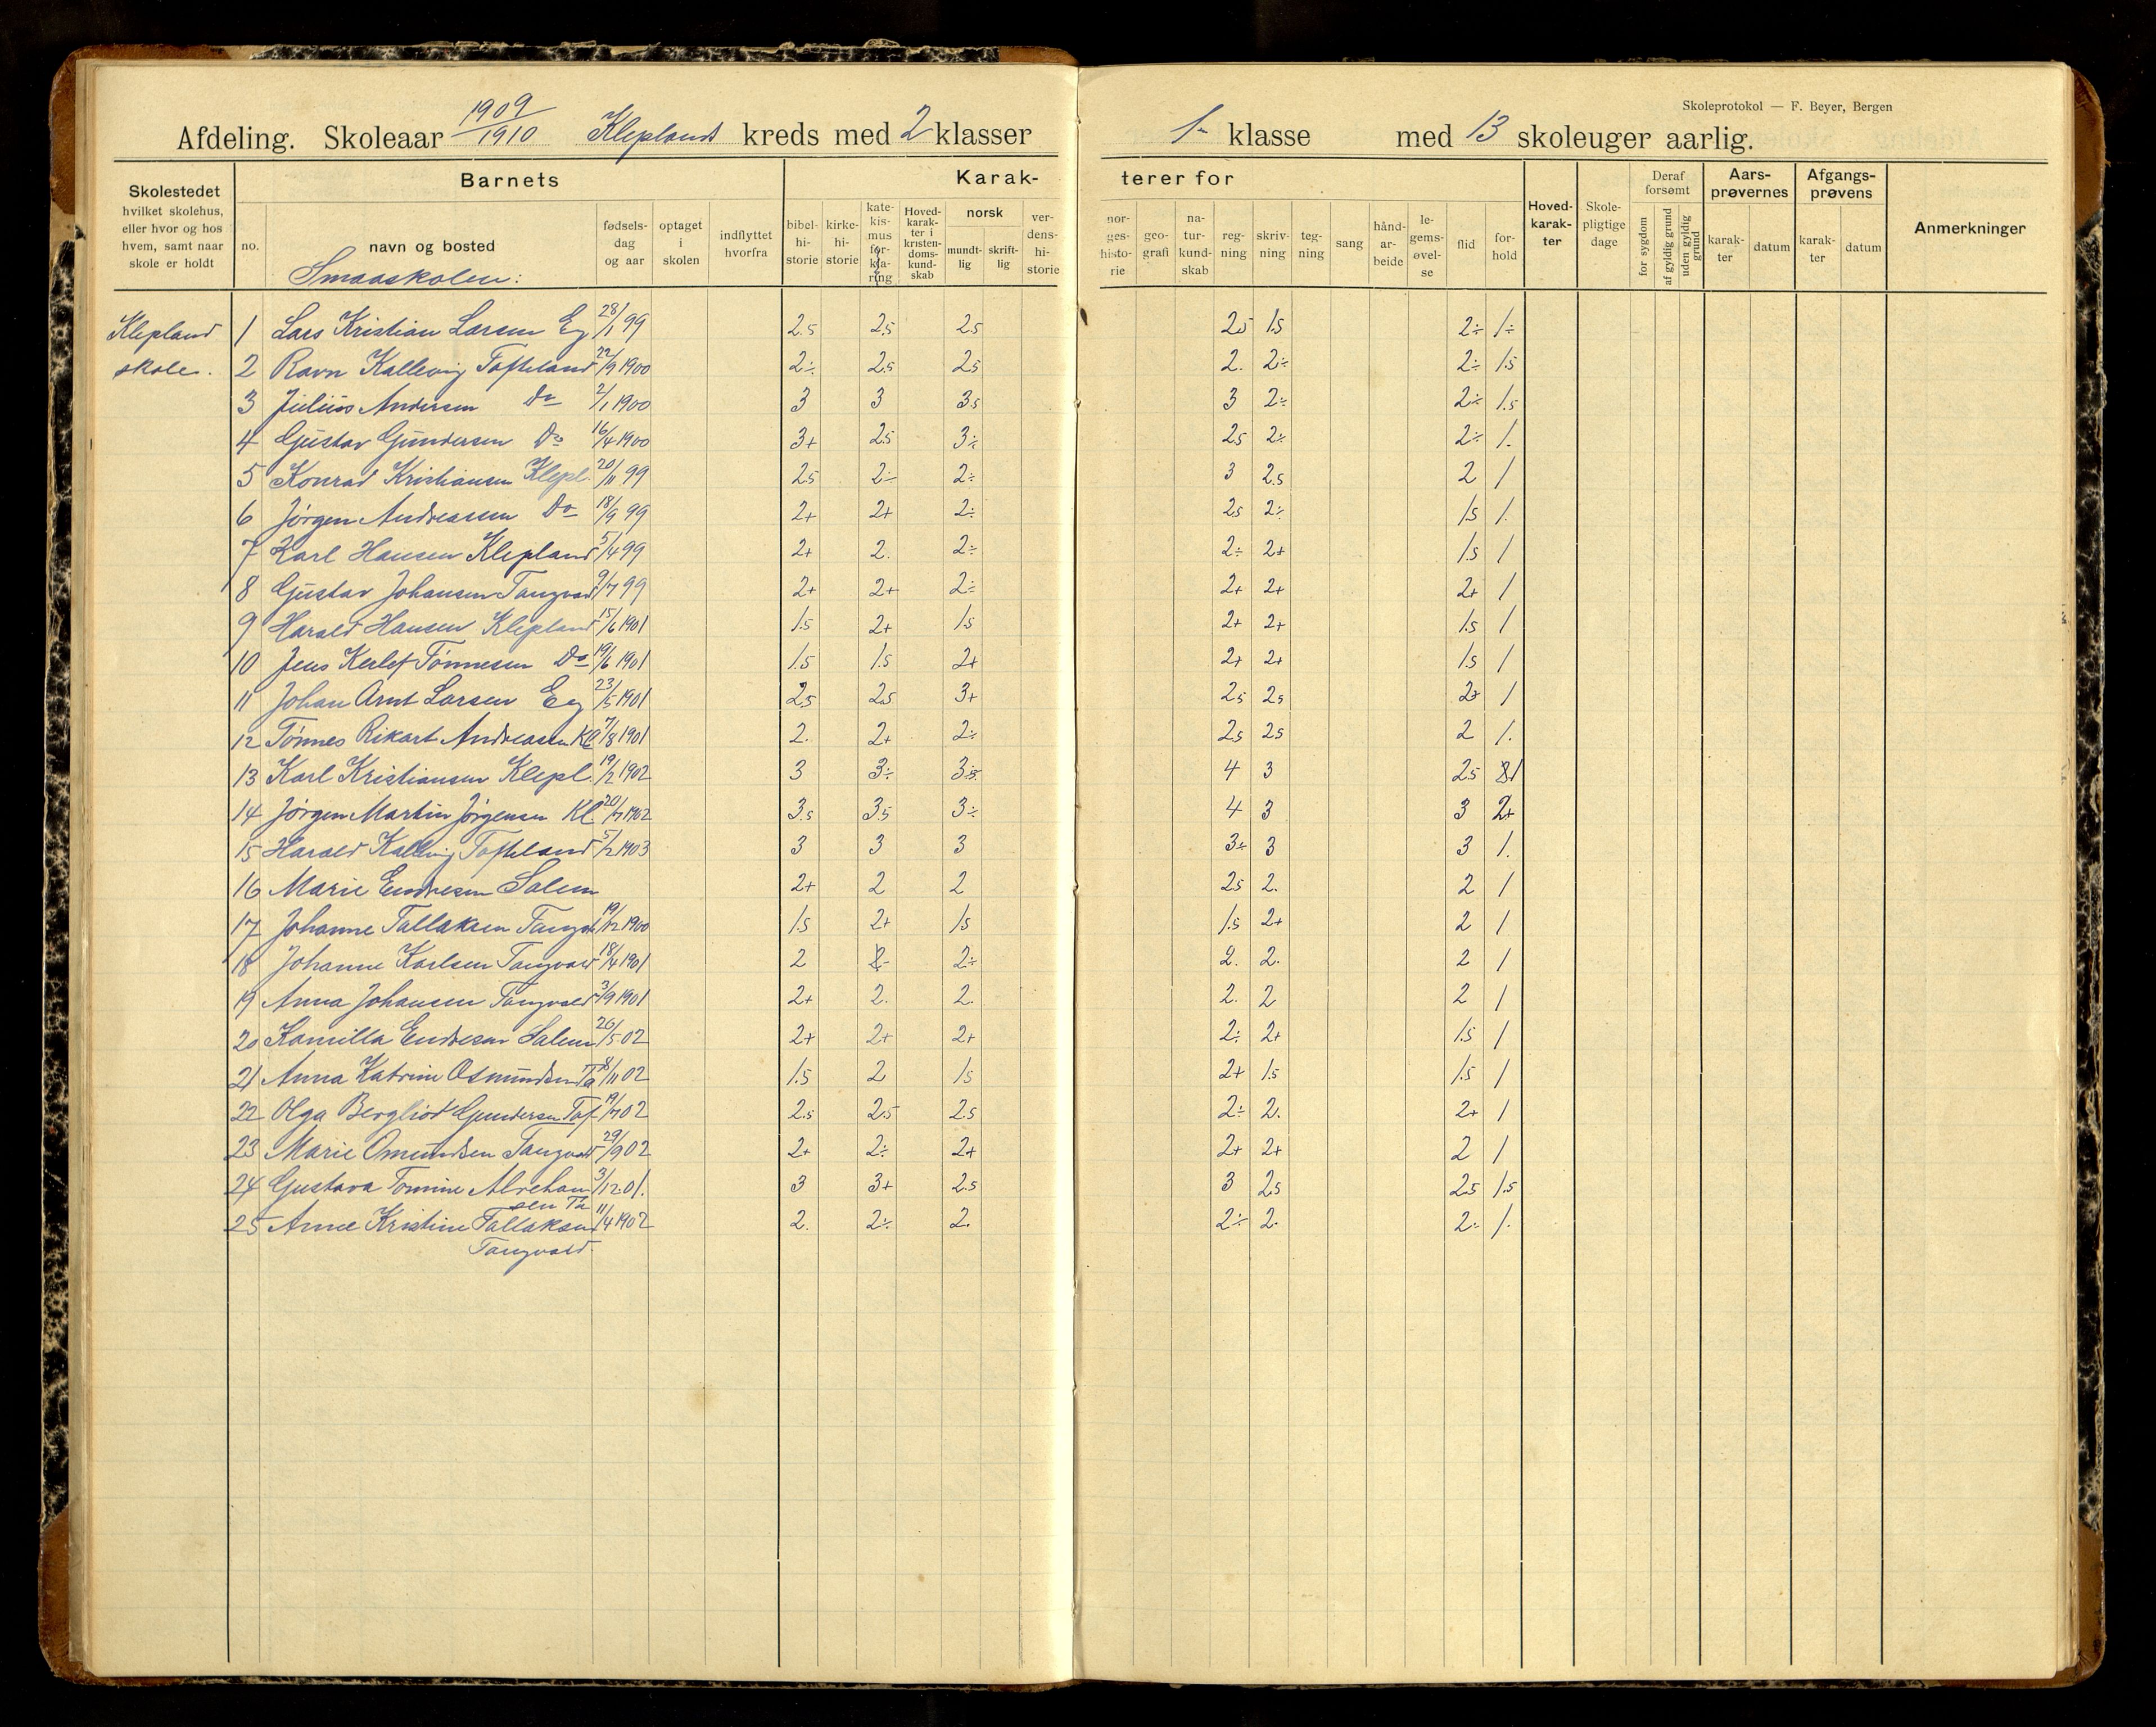 Skoleprotokol — F. Beyer, Bergen
Afdeling. Skoleaar 1909/1910 Kleplands kreds med 2 klasser 1. klasse med 13 skoleuger aarlig.
Skolestedet hvilket skolehus, eller hvor og hos hvem, samt naar skole er holdt
Barnets
no. navn og bosted fødselsdag og aar optaget i skolen indflyttet hvorfra
Karakterer for
bibelhistorie kirkehistorie katekismus forklaring Hovedkarakter i kristendomskundskab norsk mundtlig skriftlig verdenshistorie norgeshistorie geografi naturkundskab regning skrivning tegning sang håndarbeide legemsøvelse flid forhold
Hovedkarakter Skolepligtige dage Deraf forsømt for sygdom af gyldig grund uden gyldig grund
Aarsprøvernes karakter datum Afgangsprøvens karakter datum Anmerkninger
Smaaskolen:
Klepland 1 Lars Kristian Larsen Eg 28/1 99 2.5 2.5 2.5 2.5 1.5 2÷ 1÷
skole. 2 Ravn Kallevig Tofteland 22/9 1900 2÷ 2.5 2.5 2. 2÷ 2÷ 1.5
3 Julius Andersen Do 2/1 1900 3 3 3.5 3 2÷ 2÷ 1.5
4 Gustav Gundersen Do 16/4 1900 3+ 2.5 3÷ 2.5 2÷ 2÷ 1.
5 Konrad Kristiansen Klepl. 20/11 99 2.5 2÷ 2÷ 3 2.5 2 1
6 Jørgen Andreassen Do 18/9 99 2+ 2+ 2÷ 2.5 2÷ 1.5 1.
7 Karl Hansen Klepland 5/4 99 2+ 2. 2÷ 2÷ 2+ 1.5 1
8 Gustav Johansen Tangvald 9/7 99 2+ 2+ 2÷ 2+ 2+ 2+ 1
9 Harald Hansen Klepland 15/6 1901 1.5 2+ 1.5 2+ 2+ 1.5 1
10 Jens Kerlef Tønnesen Do 19/6 1901 1.5 1.5 2+ 2+ 2+ 1.5 1
11 Johan Arnt Larsen Eg 23/5 1901 2.5 2.5 3+ 2.5 2.5 2+ 1
12 Tønnes Rikart Andreasen Kl 7/8 1901 2. 2+ 2÷ 2.5 2.5 2 1.
13 Karl Kristiansen Klepl. 19/2 1902 3 3÷ 3÷ 4 3 2.5 1
14 Jørgen Martin Jørgensen Kl. 20/7 1902 3.5 3.5 3÷ 4 3 3 2+
15 Harald Kallevig Tofteland 5/2 1903 3 3 3 3÷ 3 3 1.
16 Marie Endresen Salem 2+ 2 2 2.5 2. 2 1
17 Johanne Tallaksen Tangv 19/12 1900 1.5 2+ 1.5 1.5 2+ 2 1
18 Johanne Karlsen Tangvald 18/4 1901 2 2- 2÷ 2. 2. 2 1
19 Anna Johansen Tangvald 3/9 1901 2+ 2. 2. 2. 2 2 1
20 Kamilla Endresen Salem 26/5 02 2+ 2+ 2+ 2÷ 2+ 1.5 1
21 Anna Katrine Osmundsen Ta 8/11 02 1.5 2 1.5 2+ 1.5 1.5 1
22 Olga Bergliot Gundersen Tof. 19/7 02 2.5 2.5 2.5 2÷ 2. 2+ 1
23 Marie Omundsen Tangvald 29/9 02 2+ 2÷ 2+ 2+ 2+ 2 1
24 Gustava Tomine 3/12 01. 3 3+ 2.5 3 2.5 2.5 1.5
25 Anne Kristine Tallaksen 11/4 1902 2. 2÷ 2. 2÷ 2. 2÷ 1.
Tangvald.